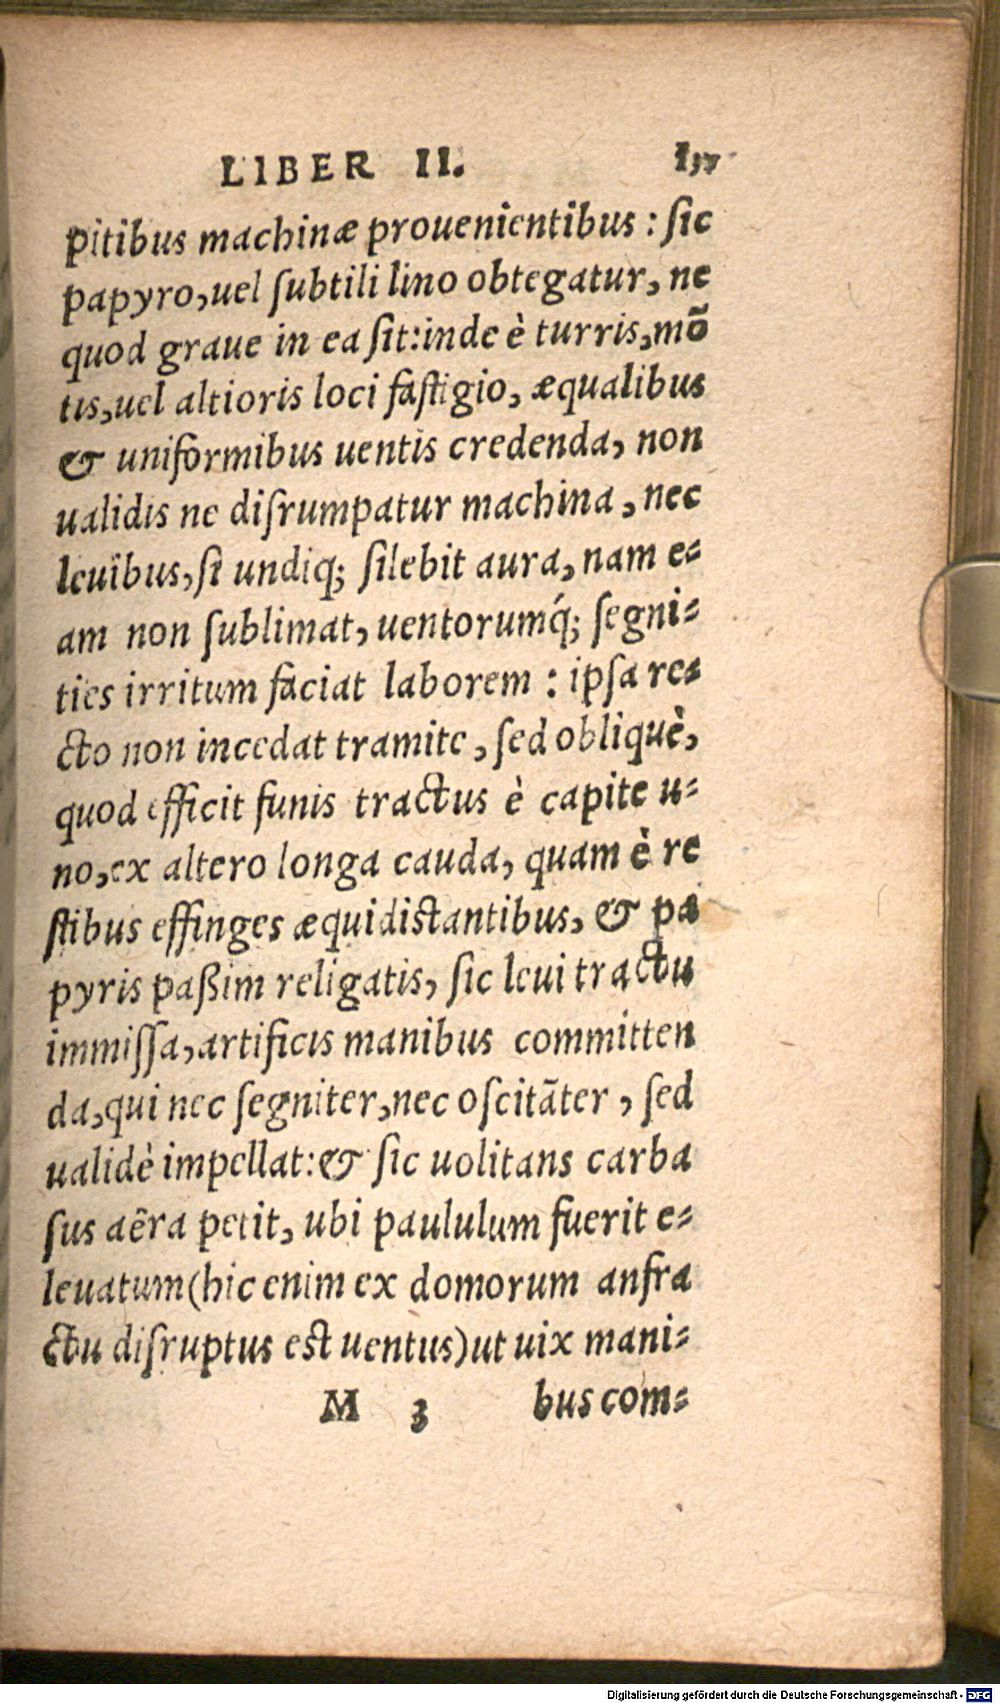 LIBER II.
pitibus machinæ prouenientibus : sic
papyro, uel subtili lino obtegatur, ne
quod graue in ea sit: inde è turris, mõ
tis, uel altioris loci fastigio, æqualibus
& uniformibus uentis credenda, non
ualidis ne disrumpatur machina, nec
leuibus, si undiq; silebit aura, nam e-
am non sublimat, uentorumq́; segni-
ties irritum faciat laborem : ipsa re-
cto non incedat tramite, sed obliquè,
quod efficit funis tractus è capite u-
no, ex altero longa cauda, quam è re
stibus effinges æquidistantibus, & pa
pyris paßim religatis, sic leui tractu
immissa, artificis manibus committen
da, qui nec segniter, nec oscitãter, sed
ualidè impellat: & sic uolitans carba
sus aëra petit, ubi paululum fuerit e-
leuatum (hic enim ex domorum anfra
ctu disruptus est uentus) ut uix mani-
M 3 bus com-
Digitalisierung gefördert durch die Deutsche Forschungsgemeinschaft - DFG